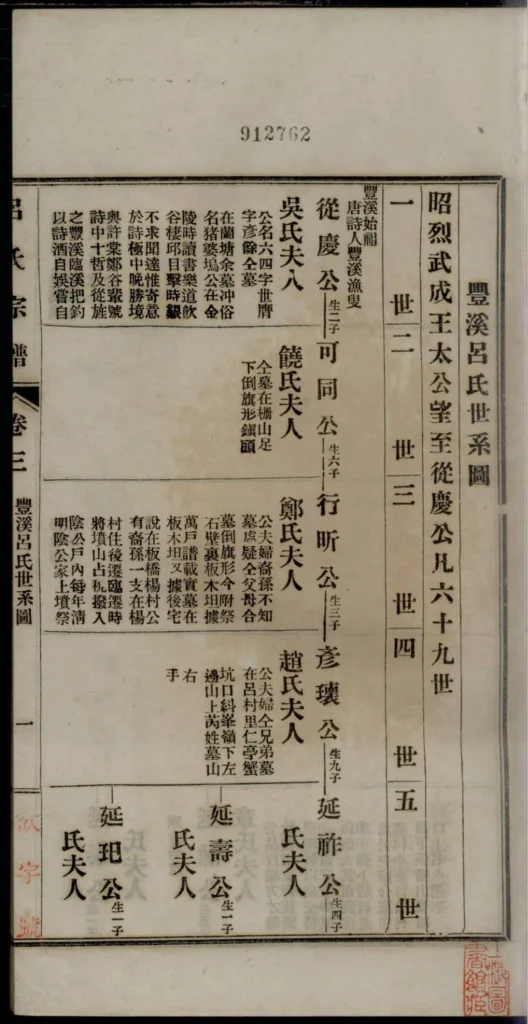 912762
豐溪呂氏世系圖
昭烈武成王太公望至從慶公凡六十九世
一世
二世
三世
四世
五世
豐溪始祖
唐詩人豐溪漁叟
從慶公
生二子
吳氏夫人
公名六四字世膺
字彥餘仝墓
在蘭塘余墓冲俗
名猪婆塢公在金
陵時讀書樂道飲
谷棲邱目擊時艱
不求聞達惟寄意
於詩極中晚勝境
與許棠鄭谷嚴號
詩中十哲及從族
之豐溪臨溪把釣
以詩酒自娛嘗自
可同公
生六子
饒氏夫人
仝墓在柵山足
下倒旗形鎮頭
行昕公
生三子
鄭氏夫人
公夫婦裔孫不知
墓處疑仝父母合
墓倒旗形今附祭
石壁裏板木坦據
萬戶譜載實墓在
板木坦又據後宅
說在板橋楊村公
有裔孫一支在楊
村住後遷臨遷時
將墳山占杋撥入
陰公戶內每年清
明陰公家上墳祭
彥瓌公
生九子
趙氏夫人
公夫婦仝兄弟墓
在呂村里仁亭蟹
坑口斜峯嶺下左
邊山上芮姓墓山
右
手
延祚公
生四子
氏夫人
延壽公
生一子
氏夫人
延玘公
生一子
氏夫人
呂氏宗譜
卷三
豐溪呂氏世系圖
一
字號